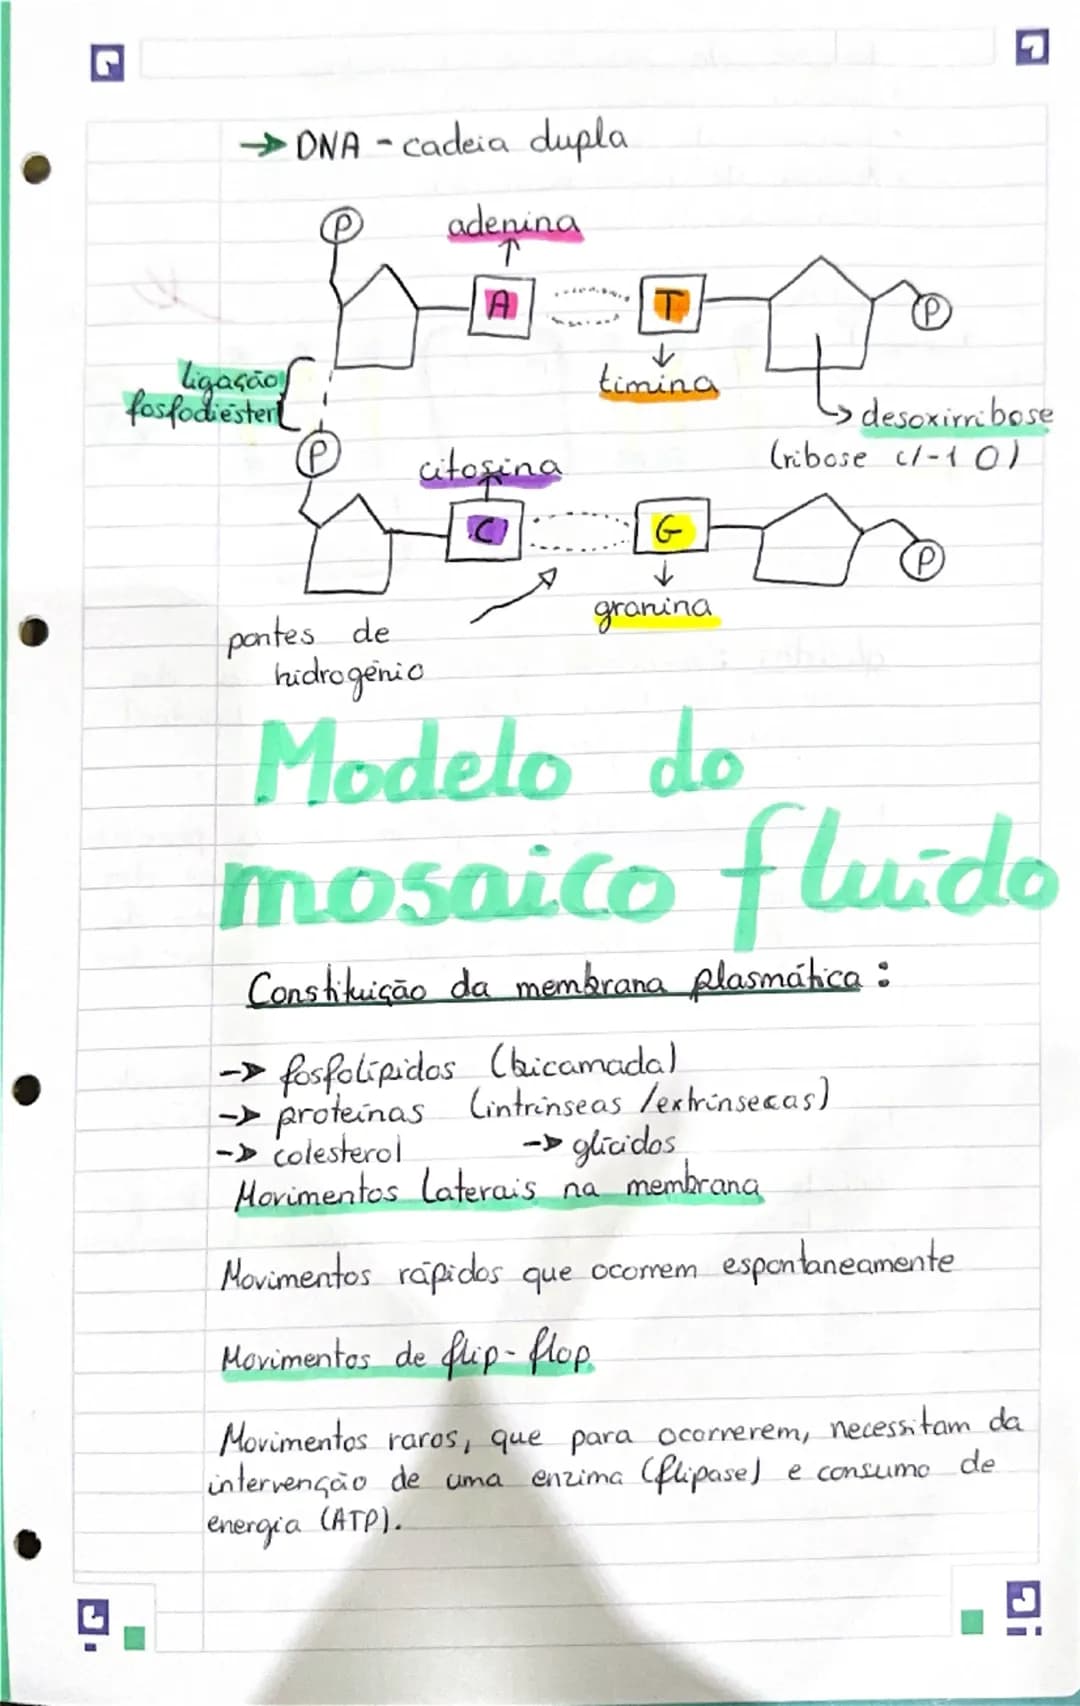 → DNA - cadeia dupla
P
adenina
A
T
P
timina
ligação
fosfodiéster
desoxirribose
(ribose c/-1 O)
P
citosina
C
G
P
granina
pontes de
hidrogénio
Modelo do
mosaico fluído
Constituição da membrana plasmática :
-> fosfolípidos (bicamada)
-> proteínas (intrínseas /extrínsecas)
-> colesterol -> glícidos
Movimentos Laterais na membrana
Movimentos rápidos que ocorrem espontaneamente
Movimentos de flip-flop
Movimentos raros, que para ocorrerem, necessitam da
intervenção de uma enzima (flipase) e consumo de
energia (ATP).